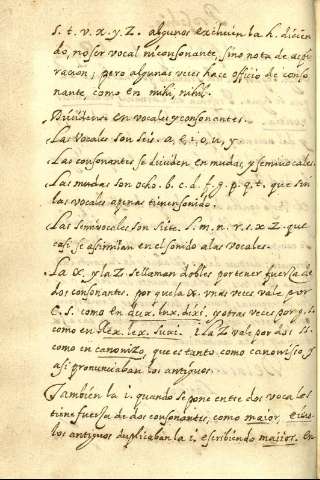 s. t. v. x. y. Z. algunos excluien la h. dicien
do, no ser vocal ni consonante, sino nota de aspi
racion; pero algunas veces hace officio de conso
nante, como en mihi, nihil.
Diuidense en vocales y consonantes.
Las vocales son seis. a, e, i, o, u, y
Las consonantes se diuiden en mudas, y semivocales.
Las mudas son ocho. b. c. d. f. g. p. q. t. que sin
las vocales apenas tienen sonido.
Las semivocales son siete. l. m. n. r. s. x. Z. que
casi se asimilan en el sonido a las vocales.
La x. y la Z. se llaman dobles por tener fuerça de
dos consonantes. por que la x. unas veces vale por
C. S. como en dux. lux. dixi. y otras veces por g. s.
como en Rex. lex. La Z. vale por dos ss.
como en canonizo, que es tanto como canonisso, y
asi pronunciaban los antiguos.
Tambien la i. quando se pone entre dos vocales
tiene fuerça de dos consonantes, como maior,
los antiguos duplicaban la i. escribiendo maiior. en